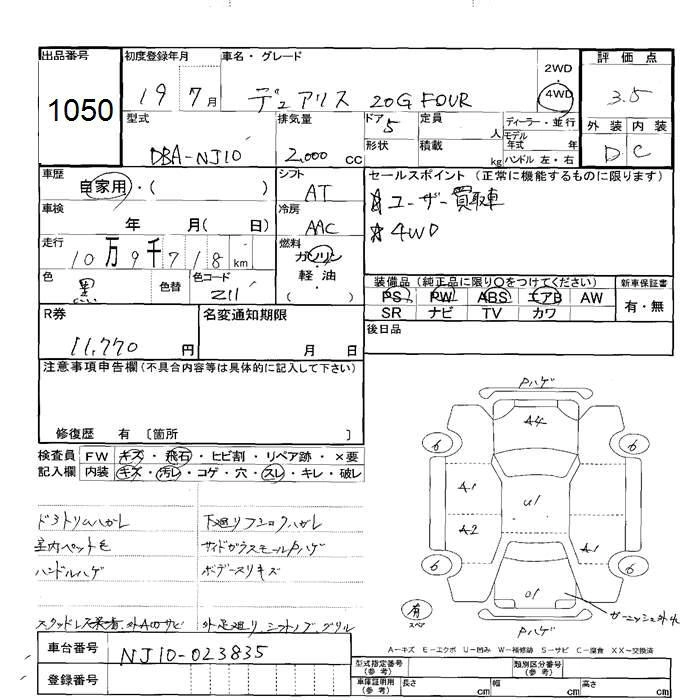 出品番号
1050
初度登録年月
19 7月
車名・グレード
デュアリス 20G FOUR
2WD
・
4WD
評価点
3.5
外装 内装
D C
型式
DBA-NJ10
排気量
2,000 cc
ドア 5
形状
定員 人
積載 kg
ディーラー・並行
モデル
年式 年
ハンドル 左・右
車歴
自家用・( )
シフト
AT
セールスポイント (正常に機能するものに限ります)
☆ユーザー買取車
☆4WD
車検
年 月( 日)
冷房
AAC
走行
10万9千718km
燃料
ガソリン
・
軽・油
( )
色
黒
色替
色コード
Z11
装備品(純正品に限り○をつけてください)
PS PW ABS エアB AW
SR ナビ TV カワ
新車保証書
有・無
R券
11,770 円
名変通知期限
月 日
後日品
注意事項申告欄(不具合内容等は具体的に記入して下さい)
修復歴 有 〔箇所 〕
検査員
記入欄
FW キズ・飛石・ヒビ割・リペア跡・×要
内装 キズ・汚レ・コゲ・穴・スレ・キレ・破レ
ドろトリムハガレ
下廻リフシロクハガレ
室内ペット毛
サイドガラスモールPハゲ
ハンドルハゲ
ボデースリキズ
外足廻リ、シフトノブ、グリル
Pハゲ
A4
6 6
A1
U1
A2
A1
6 6
01
ガーニッシュ外れ
有
スペア
Pハゲ
A-キズ E-エクボ U-凹み W-補修跡 S-サビ C-腐食 XX-交換済
車台番号
NJ10-023835
登録番号
型式指定番号
(参考)
類別区分番号
(参考)
車庫証明用
(参考)
長さ cm
幅 cm
高さ cm